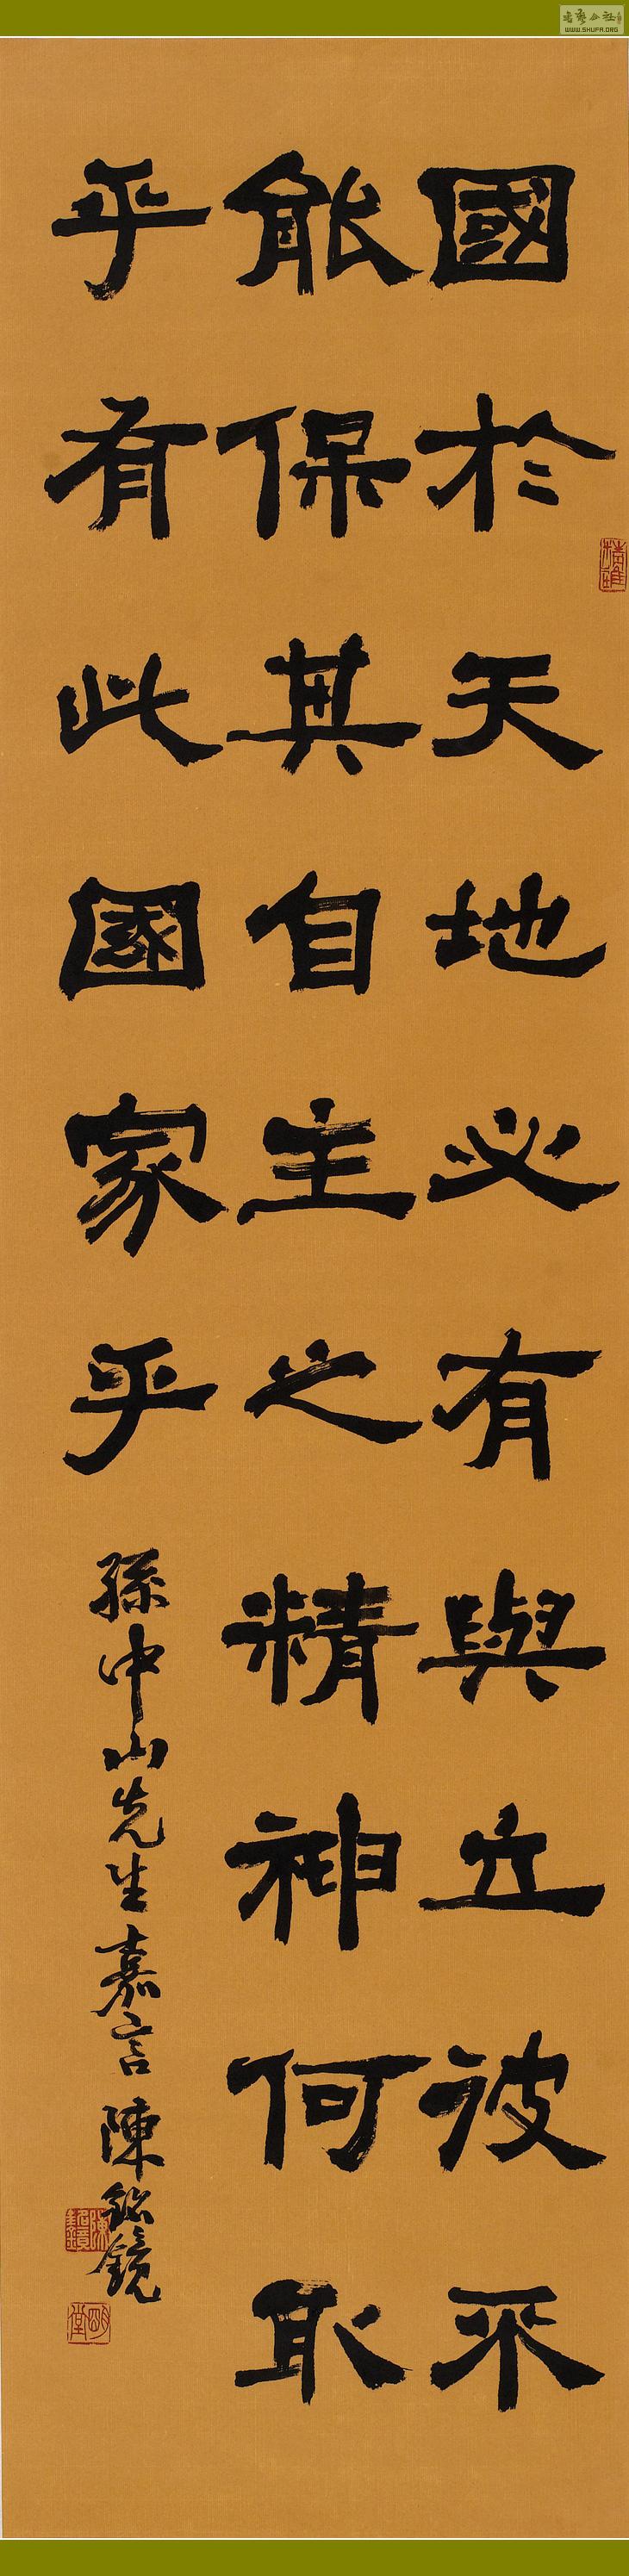 國於天地必有與立彼不
能保其自主之精神何取
乎有此國家乎
孫中山先生嘉言 陳銘鏡
WWW.SHUFA.ORG